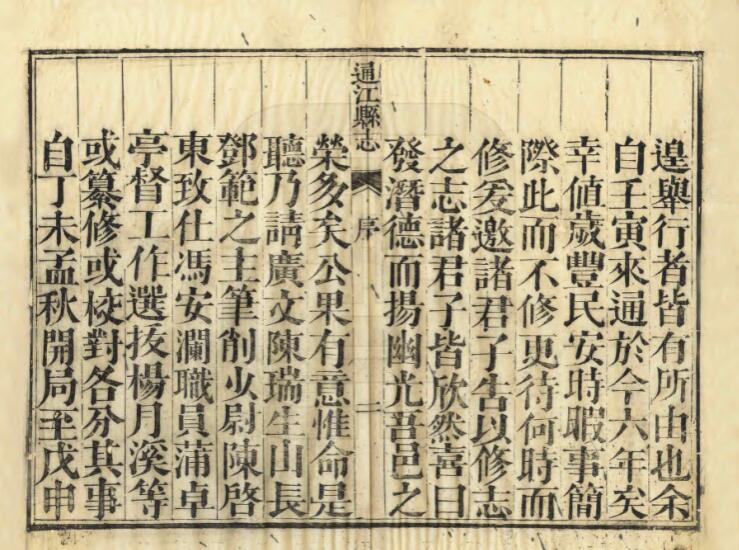 遑舉行者皆有所由也余
自壬寅來通於今六年矣
幸值歲豐民安時暇事簡
際此而不修更待何時而
修爰邀諸君子告以修志
之志諸君子皆欣然喜曰
發潛德而揚幽光吾邑之
通江縣志 序 二
榮多矣公果有意惟命是
聽乃請廣文陳瑞生山長
鄧範之主筆削少尉陳啓
東致仕馮安瀾職員蒲卓
亭督工作選拔楊月溪等
或纂修或校對各分其事
自丁未孟秋開局至戊申